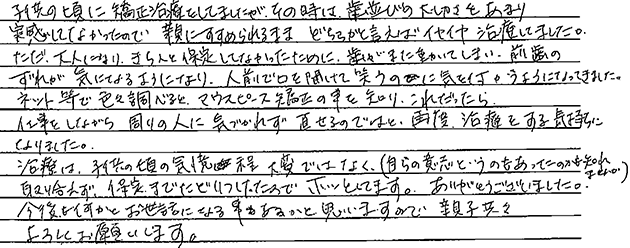 子供の頃に矯正治療をしてましたが、その時は、歯並びの大切さをあまり
実感してなかったので 親にすすめられるまま どちらかと言えばイヤイヤ 治療してました。
ただ、大人になり、きちんと保定してなかったために、歯がまた動いてしまい、前歯の
ずれが気になるようになり、人前で口を開けて笑うのに気を付かうようになってきました。
ネット等で色々調べると、マウスピース矯正の事を知り、これだったら
仕事をしながら 周りの人に気づかれず 直せるのではと、再度、治療をする気持ちに
なりました。
治療は、子供の頃の記憶程 大変ではなく、(自らの意志というのもあったのかも知れません)
取り合えず、保定までたどりつけたので ホッとしてます。ありがとうございました。
今後も何かとお世話になる事もあるかと思いますので 親子共々
よろしくお願いします。